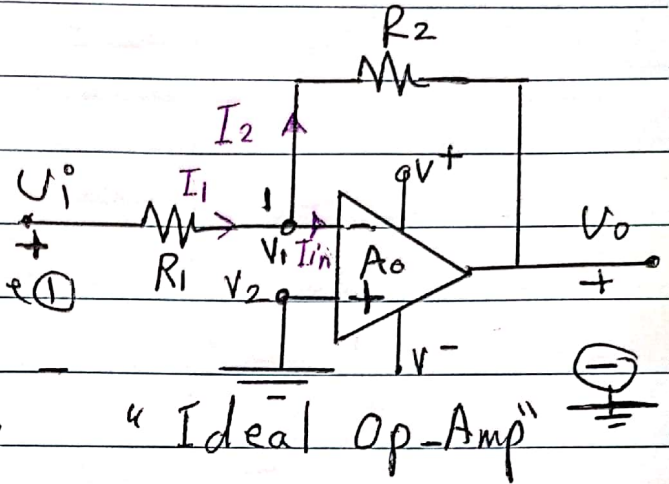 R2
I2
V+
Ui
I1
1
Uo
+
R1
V1
Iin
−
A0
+
e①
V2
+
V−
−
−
−
"Ideal Op-Amp"